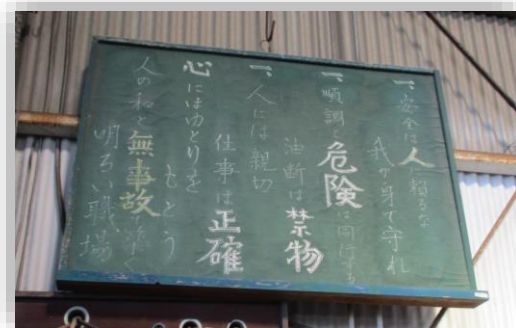 一、安全は人に頼るな
我が身で守れ
一、順調と危険は同行する
油断は禁物
一、人には親切
仕事は正確
心にはゆとりを
もとう
人の和と無事故で築く
明るい職場